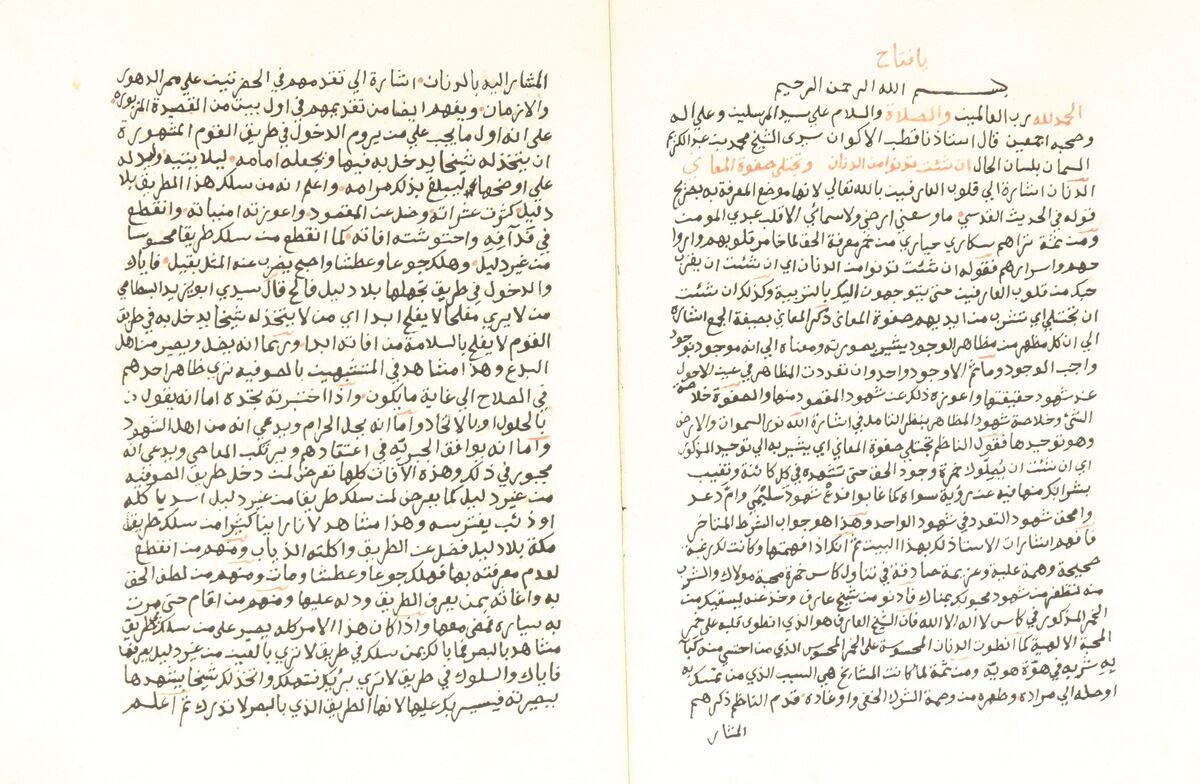 يا فتاح
بسم الله الرحمن الرحيم
الحمد لله رب العالمين والصلاة والسلام علي سيد المرسلين وعلي اله
وصحبه اجمعين قال استاذنا قطب الاكوان سيدي الشيخ محمد بن عبد الكريم
السمان بلسان الحال ان شئت تدنوا من الدنان وتجتلي صفوة المعاني
الدنان اشارة الي قلوب العارفين بالله تعالي لانها موضع المعرفة به
قوله في الحديث القدسي ما وسعني ارضي ولا سمائي الا قلب عبدي المومن
ومن ثمة تراهم سكاري حياري من خمر معرفة الحق لما خامر قلوبهم واروا
حهم واسرارهم فقوله ان شئت تدنوا من الدنان اي ان شئت ان يقرب
حبك من قلوب العارفين حتي يتوجهون اليك بالتربية وكذلك ان شئت
ان تجتلي اي صفوة المعاني ذكر المعاني بصيغة الجمع اشارة
الي ان كل مظهر من مظاهر الوجود يشير بصورته ومعناه الي انه موجود بوجود
واجب الوجود وما ثم الا وجود واحد وان تعددت المظاهر في عين الاحول
عند شهود حقيقتها واعوزه ذلك عن شهود المقصود منها والصفوة خلاصة
الشي وخلاصة شهود المظاهر بنظر التامل في اشارة الله نور السموات والارض
وهو توحيدها فقول الناظم تجتلي صفوة المعاني اي يشير به الي توحيد المذكور
اي ان شئت ان خمرة وجود الحق حتي تشهده في كل كائنة وتغيب
بشرابك منها فيه عن روية سواه كما غابوا فدع شهود سليمي وام دعد
وامحق شهود التعدد في شهود الواحد وهذا هو جواب الشرط المتاخر
فافهم اشارات الاستاذ لك بهذا البيت ثم انك اذا فهمتها وكانت لك رغبة
صحيحة وهمة علية وعزيمة صادقة في تناول كاس خمرة محبة مولاك والشرب
منه لتظفر من شهود محبوبك بمناك فادنو من شيخ عارف وخذ عنه ليسقيك من
الخمر المذكور في كاس لا اله الا الله فان الشيخ العارف هو الذي انطوي قلبه علي خمر
المحبة الالهية كما انطوت الدنان المحسوسة علي الخمر المحسوس الذي من احتسي منه كبا
به شربه في هوة هويه ومن ثمة لما كانت المشايخ هي السبب الذي من تمسك به
اوصله الي مراده وطهره من وصمة الشرك الخفي واوغاده قدم الناظم ذكرهم
المشار
المشار اليه بالدنان اشارة الي تقدمهم في الحضرتين علي ممر الدهور
والازمان ويفهم ايضا من تقديمهم في اول بيت من القصيدة المزبورة
علي انه اول ما يجب علي من يروم الدخول في طريق القوم المشهورة
ان يتخذ له شيخا يدخل به فيها ويجعله امامه ليلا يتيه وليدله
علي اوضحها ليبلغ بذلك مرامه واعلم انه من سلك هذا الطريق بلا
دليل كثرت عثراته وضل عن المقصود واعوزته امنياته وانقطع
في فدافده واحتوشته افاته كما انقطع من سلك طريقا محسوسا
من غير دليل وهلك جوعا وعطشا واصبح يضرب عنه المثل بقيل فاياك
والدخول في طريق تجهلها بلا دليل فالح قال سيدي ابو يزيد البسطامي
من لا يري مفلحا لا يفلح ابدا اي من لا يتخذ له شيخا يدخل به في طريق
القوم لا يفلح بالسلامة من افاته ابدا وربما انه يضل ويصير من اهل
البدع وهذا مشاهد في المتشبهين بالصوفيه تري ظاهر احدهم
في الصلاح الي غاية ما يكون واذا اختبرته تجده اما انه يقول
بالحلول او بالاتحاد واما انه يحل الحرام ويدعي انه من اهل الشهود
واما انه يوافق الجبرية في اعتقادهم ويرتكب المعاصي ويدعي انه
مجبور في ذلك وهذه الافات كلها تعرض لمن دخل طريق الصوفيه
من غير دليل كما يعرض لمن سلك طريقا من غير دليل اسد ياكله
او ذئب يفترسه وهذا مشاهد لانا راينا كثيرا من سلك طريق
مكة بلا دليل فضل عن الطريق واكلته الذياب ومنهم من انقطع
لعدم معرفته بها فهلك جوعا وعطشا ومات ومنهم من لطف الحق
به واغاثه بمن يعرف الطريق ودله عليها ومنهم من اقام حتي مرت
به سيارة فمضي معها واذا كان هذا الامر كله يصير علي من سلك طريق
مشاهد بالبصر فما بالك بمن سلك في طريق لا تري بالعين من غير دليل يعرفها
فاياك والسلوك في طريق لا تري بريك فتهلك واتخذ لك شيخا يشهدها
ببصيرته فيسير بك عليها لانها الطريق الذي بالبصر لا تدرك ثم اعلم